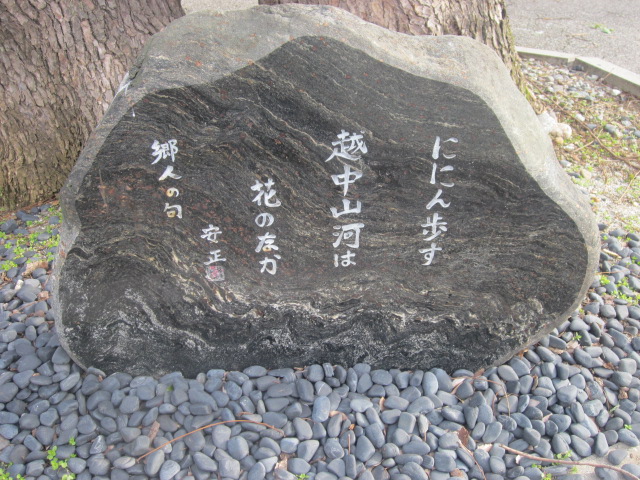 ににん歩す
越中山河は
花のなか
安正
郷人の句